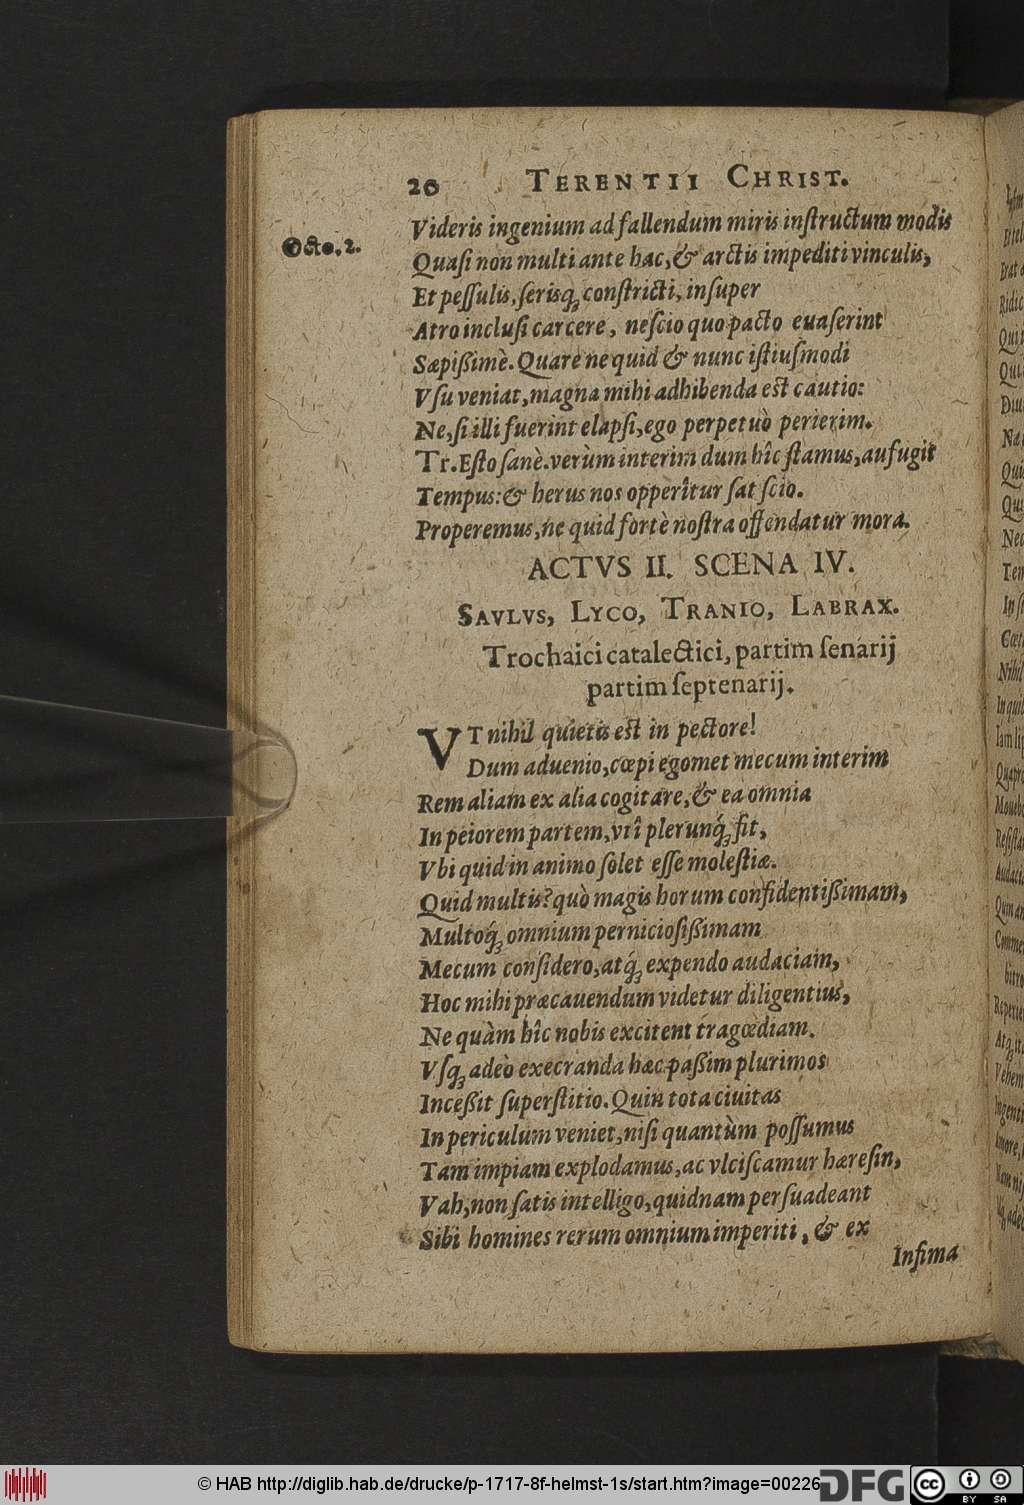 20 TERENTII CHRIST.
Videris ingenium ad fallendum miris inſtructum modis
Octo. 2.
Quaſi non multi ante hac, & arctis impediti vinculis,
Et peſſulis, ſerisq́ꝫ conſtricti, inſuper
Atro incluſi carcere, neſcio quo pacto euaſerint
Sæpißimè. Quare ne quid & nunc iſtiuſmodi
Vſu veniat, magna mihi adhibenda eſt cautio:
Ne, ſi illi fuerint elapſi, ego perpetuò perierim.
Tr. Eſto ſanè. verum interim dum hîc ſtamus, aufugit
Tempus: & herus nos opperîtur ſat ſcio.
Properemus, ne quid fortè noſtra offendatur mora.
ACTVS II. SCENA IV.
SAVLVS, LYCO, TRANIO, LABRAX.
Trochaici catalectici, partim ſenarij
partim ſeptenarij.
VT nihil quietis eſt in pectore!
Dum aduenio, cœpi egomet mecum interim
Rem aliam ex alia cogitare, & ea omnia
In peiorem partem, vti plerunq́ꝫ fit,
Vbi quid in animo ſolet eſſe moleſtiæ.
Quid multis? quò magis horum confidentißimam,
Multoq́ꝫ omnium pernicioſißimam
Mecum conſidero, atq́ꝫ expendo audaciam,
Hoc mihi præcauendum videtur diligentius,
Ne quàm hîc nobis excitent tragœdiam.
Vſqꝫ adeò execranda hæc paßim plurimos
Inceßit ſuperſtitio. Quin tota ciuitas
In periculum veniet, niſi quantùm poſſumus
Tam impiam explodamus, ac vlciſcamur hæreſin,
Vah, non ſatis intelligo, quidnam perſuadeant
Sibi homines rerum omnium imperiti, & ex
Infima
© HAB http://diglib.hab.de/drucke/p-1717-8f-helmst-1s/start.htm?image=00226
DFG
cc BY SA